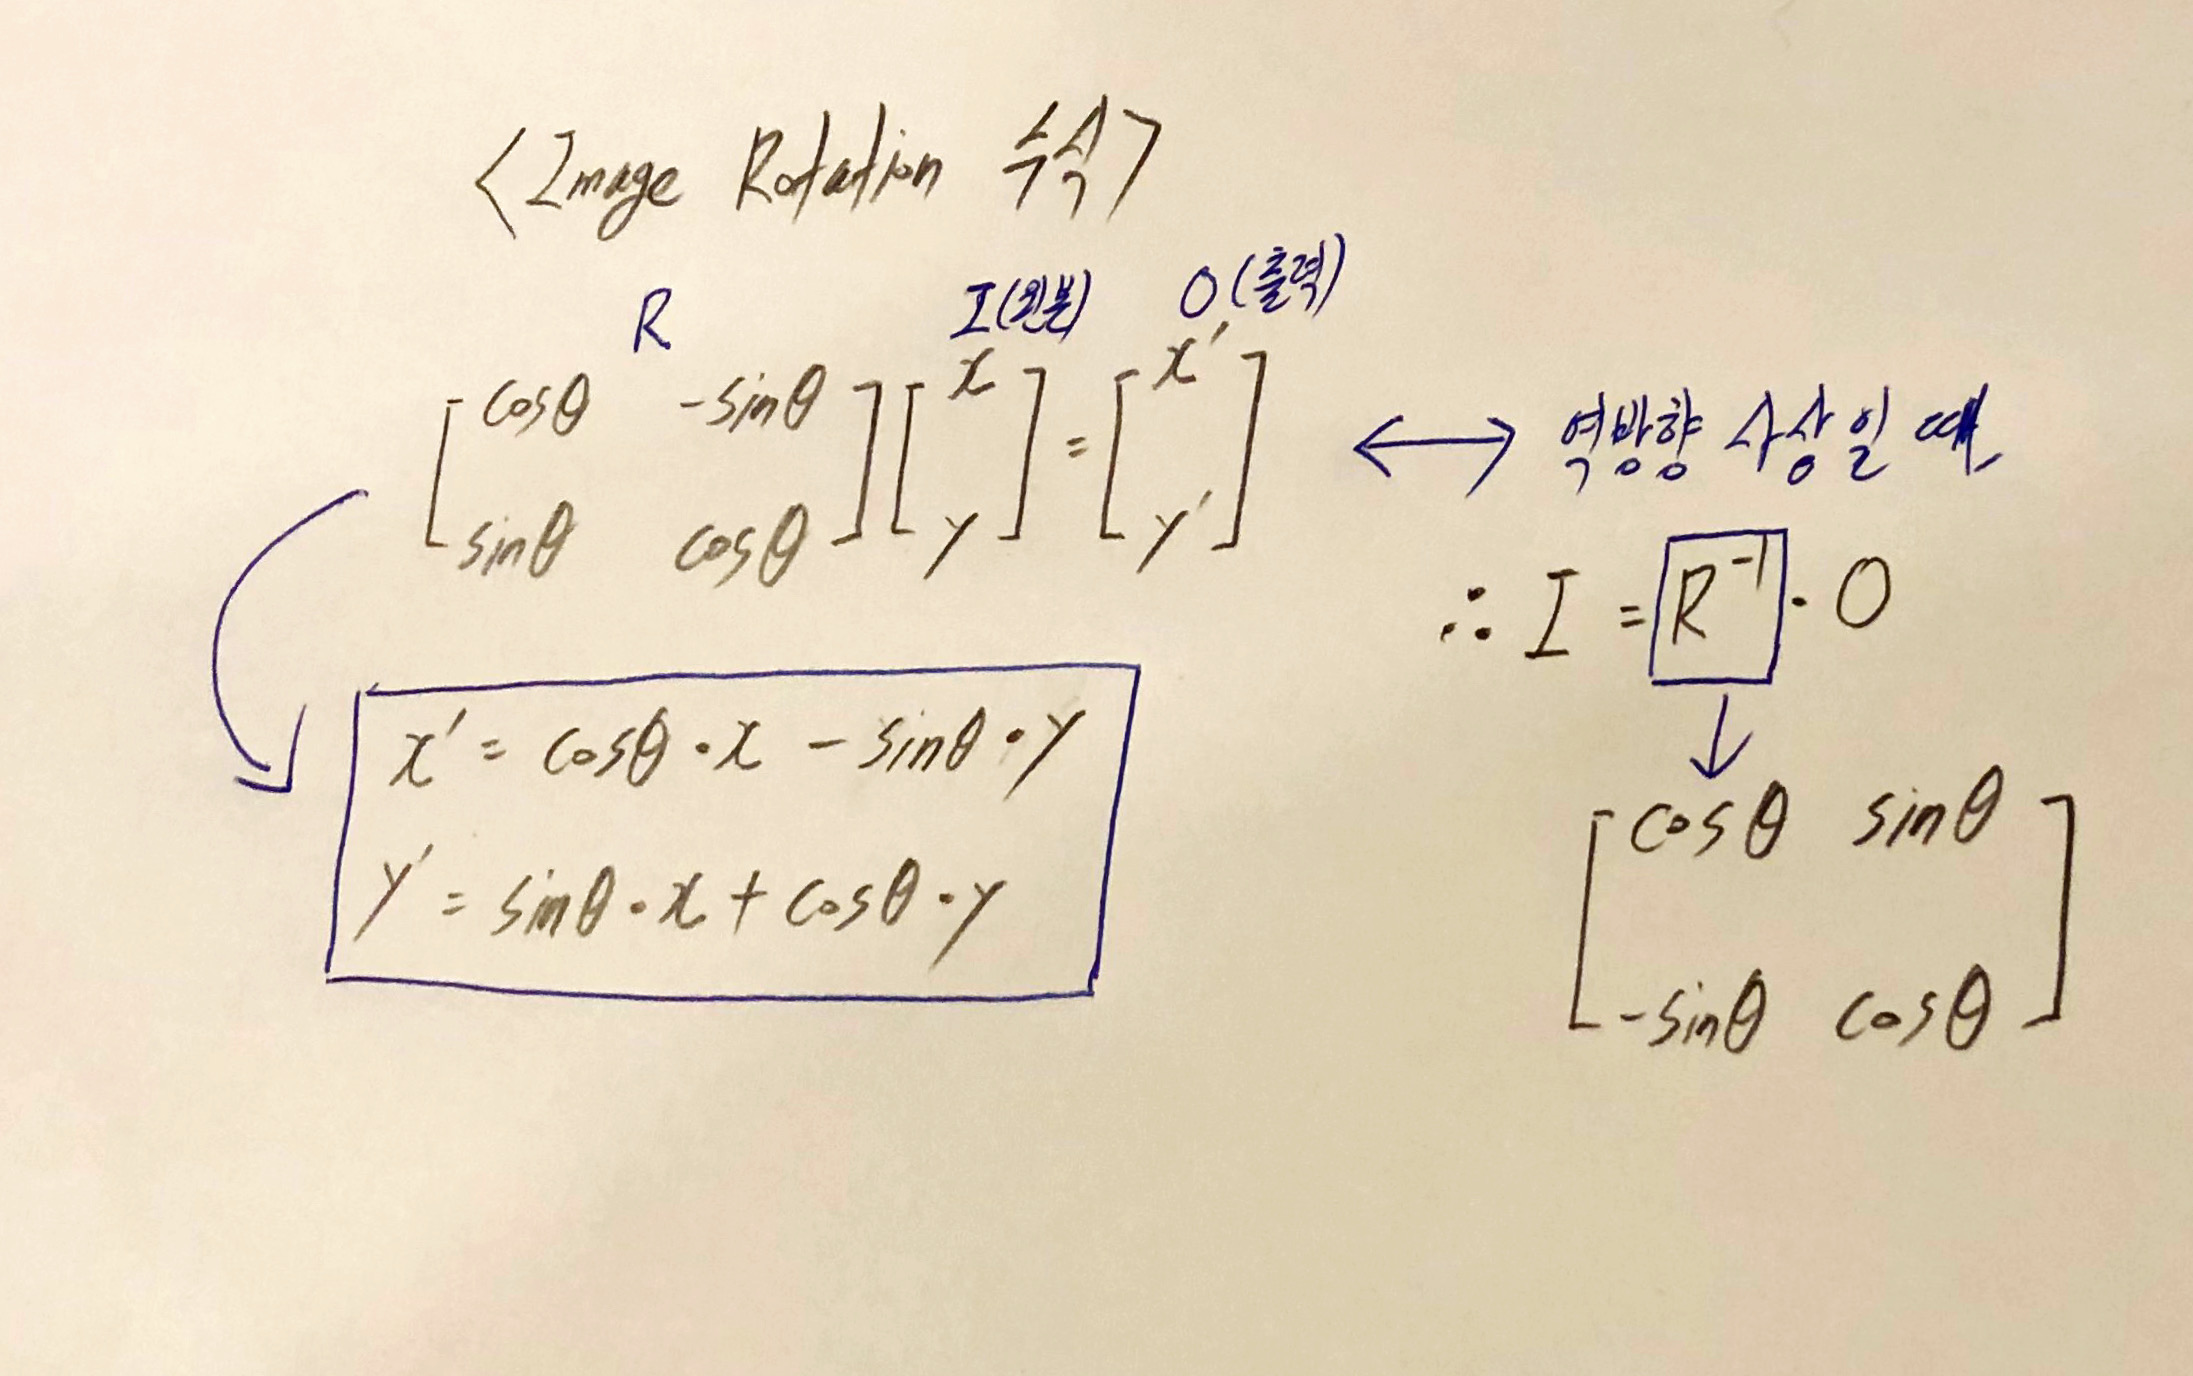 <Image Rotation 수식>
R I(원본) O(출력)
[cosθ -sinθ] [x] = [x']
[sinθ cosθ] [y] [y']
↔ 역방향 사상일 때
∴ I = R⁻¹ · O
x' = cosθ · x - sinθ · y
y' = sinθ · x + cosθ · y
[cosθ sinθ]
[-sinθ cosθ]